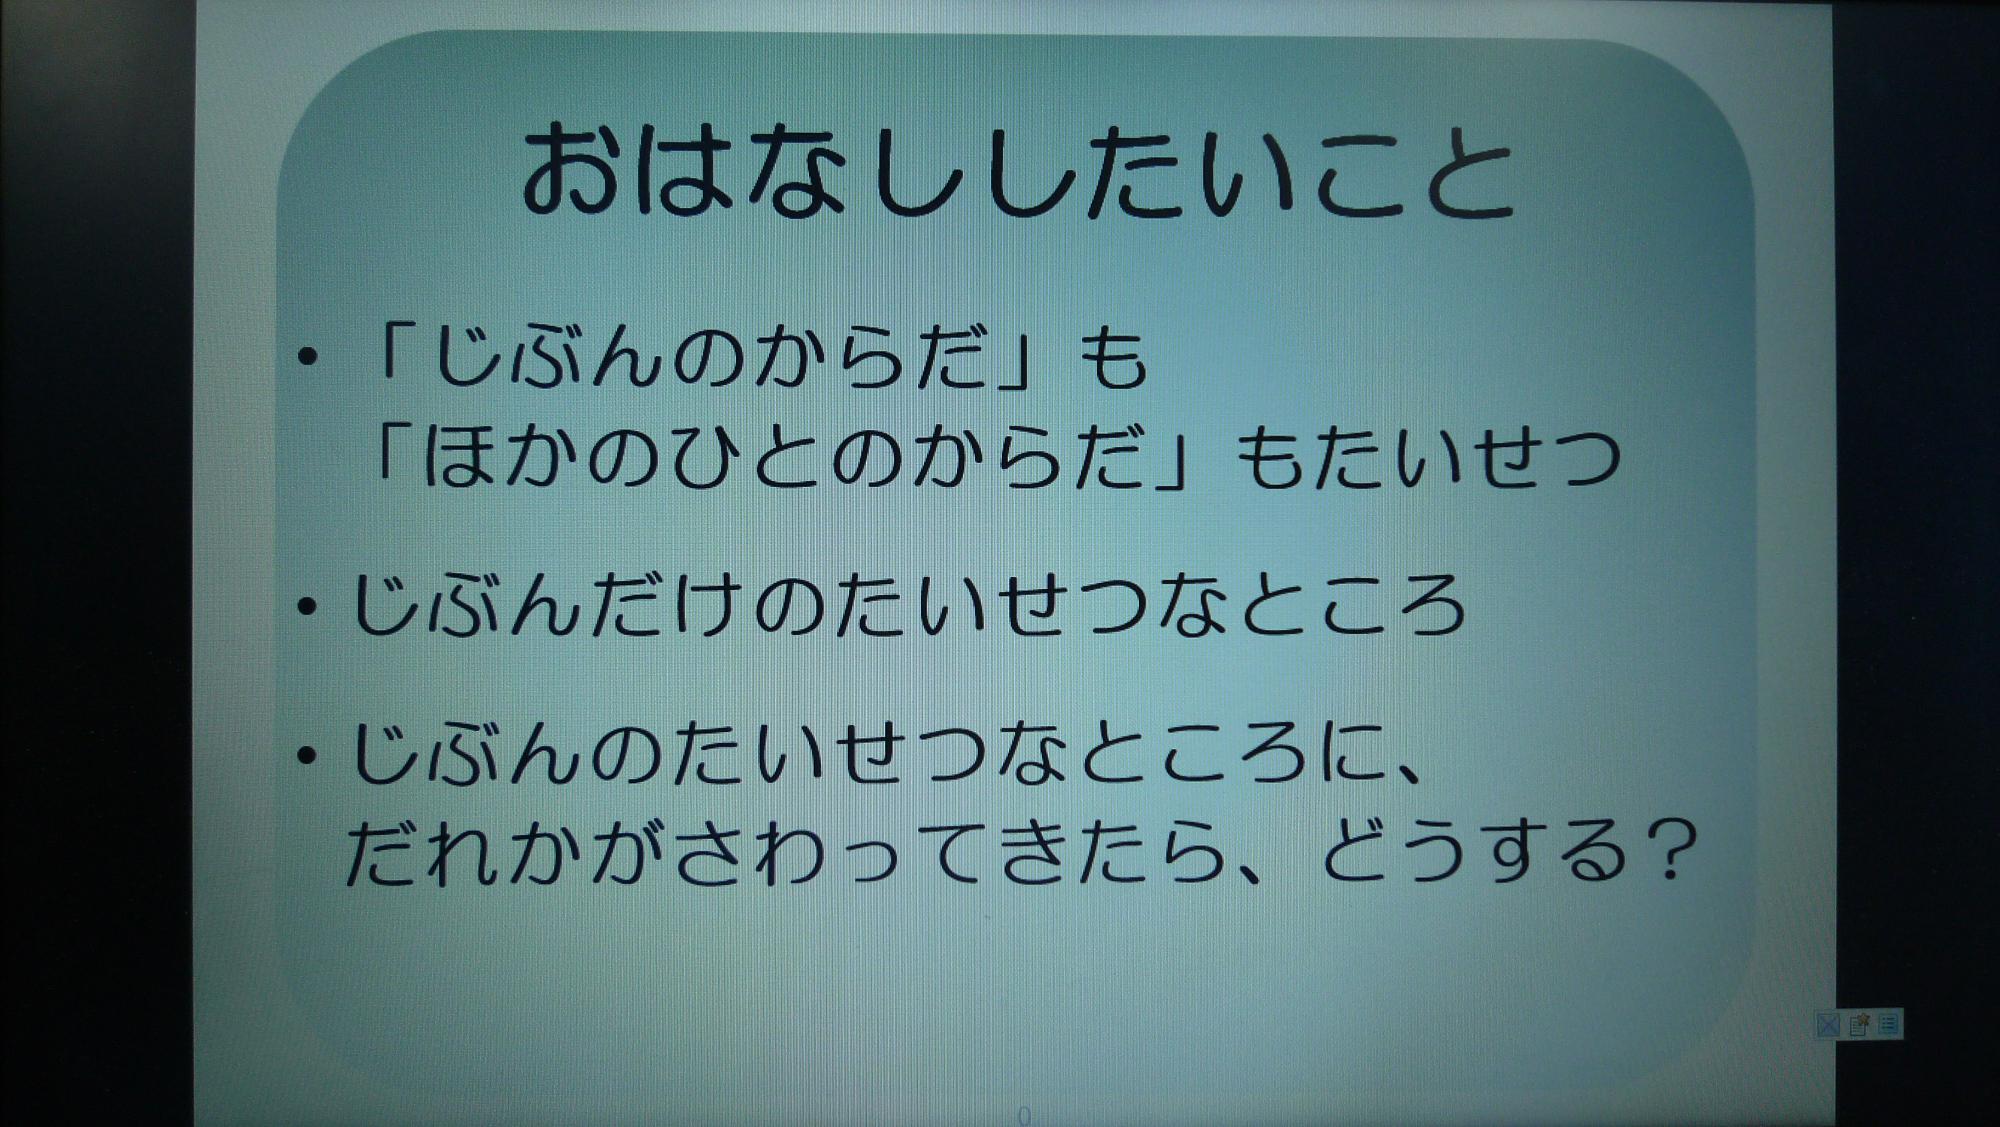 おはなししたいこと
・「じぶんのからだ」も
「ほかのひとのからだ」もたいせつ
・じぶんだけのたいせつなところ
・じぶんのたいせつなところに、
だれかがさわってきたら、どうする？
0